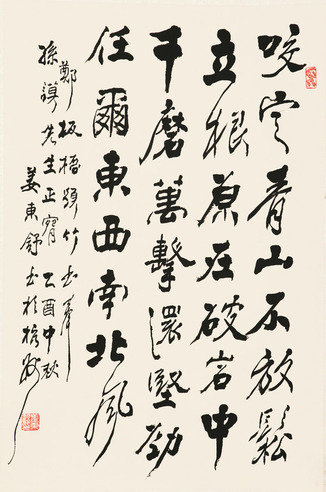 咬定青山不放鬆
立根原在破岩中
千磨萬擊還堅勁
任爾東西南北風
鄭板橋題竹
乙酉中秋
姜東舒書於杭州